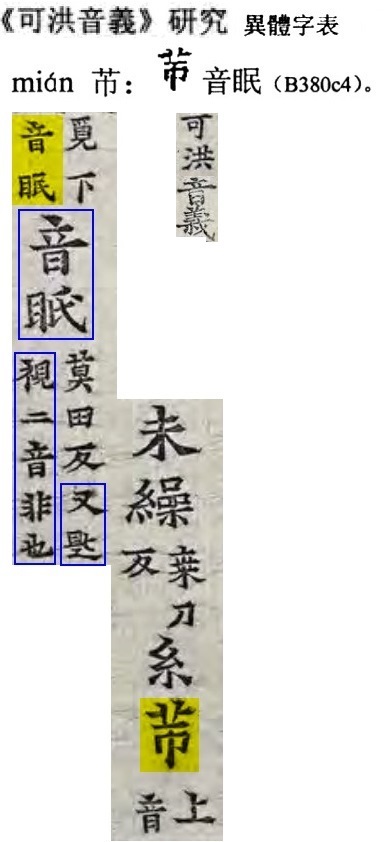 《可洪音義》研究 異體字表
mián 芇：芾 音眠（B380c4）。
可洪音義
未繰
桒刀
反
糸芾
上
音
覓下
音眠
音眡
莫田反又
視二音非也